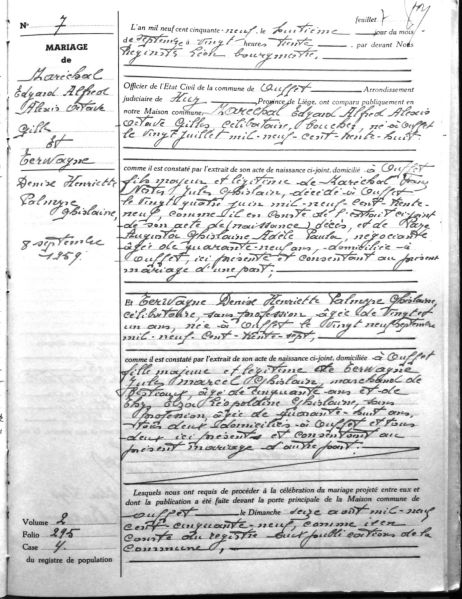 feuillet 7
N° 7
MARIAGE
de
Maréchal
Edgard Alfred
Alexis Octave
Gille
Et
Terwagne
Denise Henriette
Palmyre
Ghislaine,
8 septembre
1959.
L'an mil neuf cent cinquante-neuf, le huitième jour du mois
de septembre à vingt heures trente, par devant Nous
Léon bourgmestre,
Officier de l'Etat Civil de la commune de Ouffet Arrondissement
judiciaire de Huy Province de Liège, ont comparu publiquement en
notre Maison commune, Maréchal Edgard Alfred Alexis
Octave Gilles, célibataire, boucher, né à Ouffet
le vingt juillet mil-neuf-cent-trente-huit
comme il est constaté par l'extrait de son acte de naissance ci-joint, domicilié à Ouffet
fils majeur et légitime de Maréchal
Jules Ghislain, décédé à Ouffet
le vingt quatre juin mil-neuf-cent-trente-
neuf, comme il en conste de l'extrait ci-joint
de son acte de (naissance) décès, et de
Augusta Ghislaine Adèle Paula, négociante
âgée de quarante-neuf ans, domiciliée à
Ouffet, ici présente et consentant au présent
mariage d'une part;
Et Terwagne Denise Henriette Palmyre Ghislaine,
célibataire, sans profession, âgée de vingt et
un ans, née à Ouffet le vingt neuf septembre
mil-neuf-cent-trente-sept,
comme il est constaté par l'extrait de son acte de naissance ci-joint, domiciliée à Ouffet
fille majeure et légitime de Terwagne
Jules Marcel Ghislain, marchand de
bestiaux, âgé de cinquante ans et de
Léopoldine Ghislaine, sans
profession, âgée de quarante-huit ans,
tous deux domiciliés à Ouffet et tous
deux ici présents et consentant au
présent mariage d'autre part.
Lesquels nous ont requis de procéder à la célébration du mariage projeté entre eux et
dont la publication a été faite devant la porte principale de la Maison commune de
Ouffet le Dimanche seize août mil-neuf
cent-cinquante-neuf, comme il en
conste du registre aux publications de la
commune;
Volume 2
Folio 295
Case 4
du registre de population